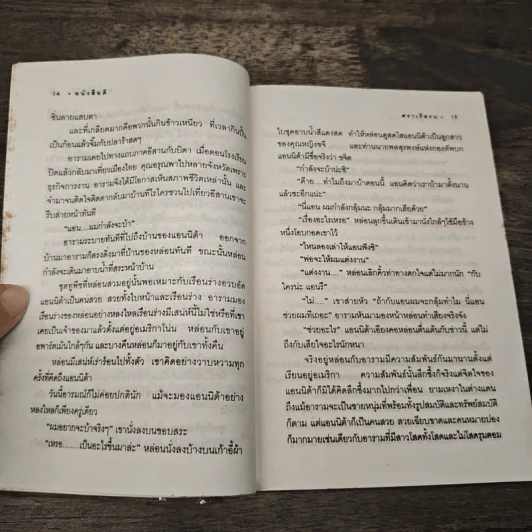 14 • หนังสือดี
ซิ่นลายแสบตา
และที่เกลียดมากคือพวกนั้นกินข้าวเหนียว ที่เวลากินปั้น
เป็นก้อนแล้วจิ้มกับปลาร้าสดๆ
อารามเคยไปทางแถบภาคอีสานกับบิดา เมื่อตอนโรงเรียน
ปิดแล้วกลับมาเที่ยวเมืองไทย คุณอรุณพาไปหลายจังหวัดเพราะ
ธุรกิจการงาน อารามจึงได้มีโอกาสเห็นสภาพชีวิตเหล่านั้น และ
จำมาจนติดใจติดตากลับมาบ้านทีไรใครชวนไปเที่ยวอีสานเขาจะ
รีบส่ายหน้าทันที
"แอน....ผมกำลังจะบ้า"
อารามระบายทันทีที่ไปถึงบ้านของแอนนิต้า ออกจาก
บ้านมาอารามก็ตรงดิ่งมาที่บ้านของหล่อนทันที ขณะนั้นหล่อน
กำลังจะเดินมาอาบน้ำที่สระหน้าบ้าน
ชุดทูพีซที่หล่อนสวมอยู่นั้นพอเหมาะกับเรือนร่างอวบอัด
แอนนิต้าเป็นคนสวย สวยทั้งใบหน้าและเรือนร่าง อารามมอง
เรือนร่างของหล่อนอย่างหลงใหลเรือนร่างมีเสน่ห์นี้ไม่ใช่หรือที่เขา
เคยเป็นเจ้าของมาแล้วตั้งแต่อยู่อเมริกาโน่น หล่อนกับเขาอยู่
อพาร์ตเม้นใกล้ๆกัน และบางคืนหล่อนก็มาอยู่กับเขาทั้งคืน
หล่อนมีเสน่ห์เร่าร้อนไปทั้งตัว เขาคิดอย่างวาบหวามทุก
ครั้งที่คิดถึงแอนนิต้า
วันนี้อารมณ์ก็ไม่ค่อยปกตินัก แม้จะมองแอนนิต้าอย่าง
หลงใหลก็เพียงครู่เดียว
"ผมอยากจะบ้าจริงๆ" เขานั่งลงบนขอบสระ
"เหรอ.......เป็นอะไรขึ้นมาล่ะ" หล่อนนั่งลงบ้างบนเก้าอี้ผ้า
15
ใบชุดอาบน้ำสีแดงสด ทำให้หล่อนดูสดใสแอนนิต้าเป็นลูกสาว
ของคุณหญิงขจี และท่านนายพลสุรพงษ์แห่งกองทัพบก
แอนนิต้ามีชื่อจริงว่า ขจิต
"กำลังจะบ้าน่ะซิ"
"ต๊าย....ทำไมถึงมาบ้าตอนนี้ แอนคิดว่าเราบ้ามาตั้งนาน
แล้วซะอีกแน่ะ"
"นี่แอน ผมกำลังกลุ้มนะ กลุ้มมากเสียด้วย"
"เรื่องอะไรเหรอ" หล่อนลุกขึ้นเดินเข้ามานั่งใกล้ๆใช้มือข้าง
หนึ่งโอบกอดเขาไว้
"ไหนลองเล่าให้แอนฟังซิ"
"พ่อจะให้ผมแต่งงาน"
"แต่งงาน...." หล่อนเลิกคิ้วท่าทางตกใจแต่ไม่มากนัก "กับ
ใครน่ะ แอนรึ"
"ไม่...." เขาส่ายหัว "ถ้ากับแอนผมจะกลุ้มทำไม นี่แอน
ช่วยผมทีเถอะ" อารามหันมามองหน้าหล่อนทำเสียงจริงจัง
"ช่วยอะไร" แอนนิต้าเอียงคอหล่อนตื่นเต้นกับข่าวนี้ แต่ไม่
ถึงกับเสียใจอะไรนักหนา
จริงอยู่หล่อนกับอารามมีความสัมพันธ์กันมานานตั้งแต่
เรียนอยู่อเมริกา ความสัมพันธ์นั้นลึกซึ้งก็จริงแต่จิตใจของ
แอนนิต้าก็มิได้คิดลึกซึ้งมากไปกว่าเพื่อน ยามเหงาในต่างแดน
ถึงแม้อารามจะเป็นชายหนุ่มที่พร้อมทั้งรูปสมบัติและทรัพย์สมบัติ
ก็ตาม แต่แอนนิต้าก็เป็นคนสวย สวยเฉียบขาดและคนหมายปอง
ก็มากมายเช่นเดียวกับอารามที่มีสาวโสดทั้งโสดและไม่โสดรุมตอม